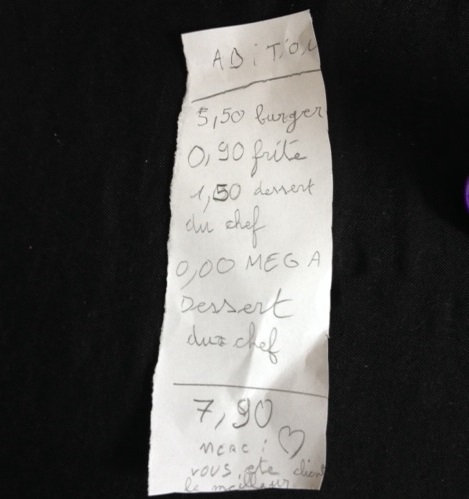 ADiTiON
5,50 burger
0,90 frite
1,50 dessert
du chef
0,00 MEGA
Dessert
du chef
7,90
merci ♡
vous ête client
le meilleur